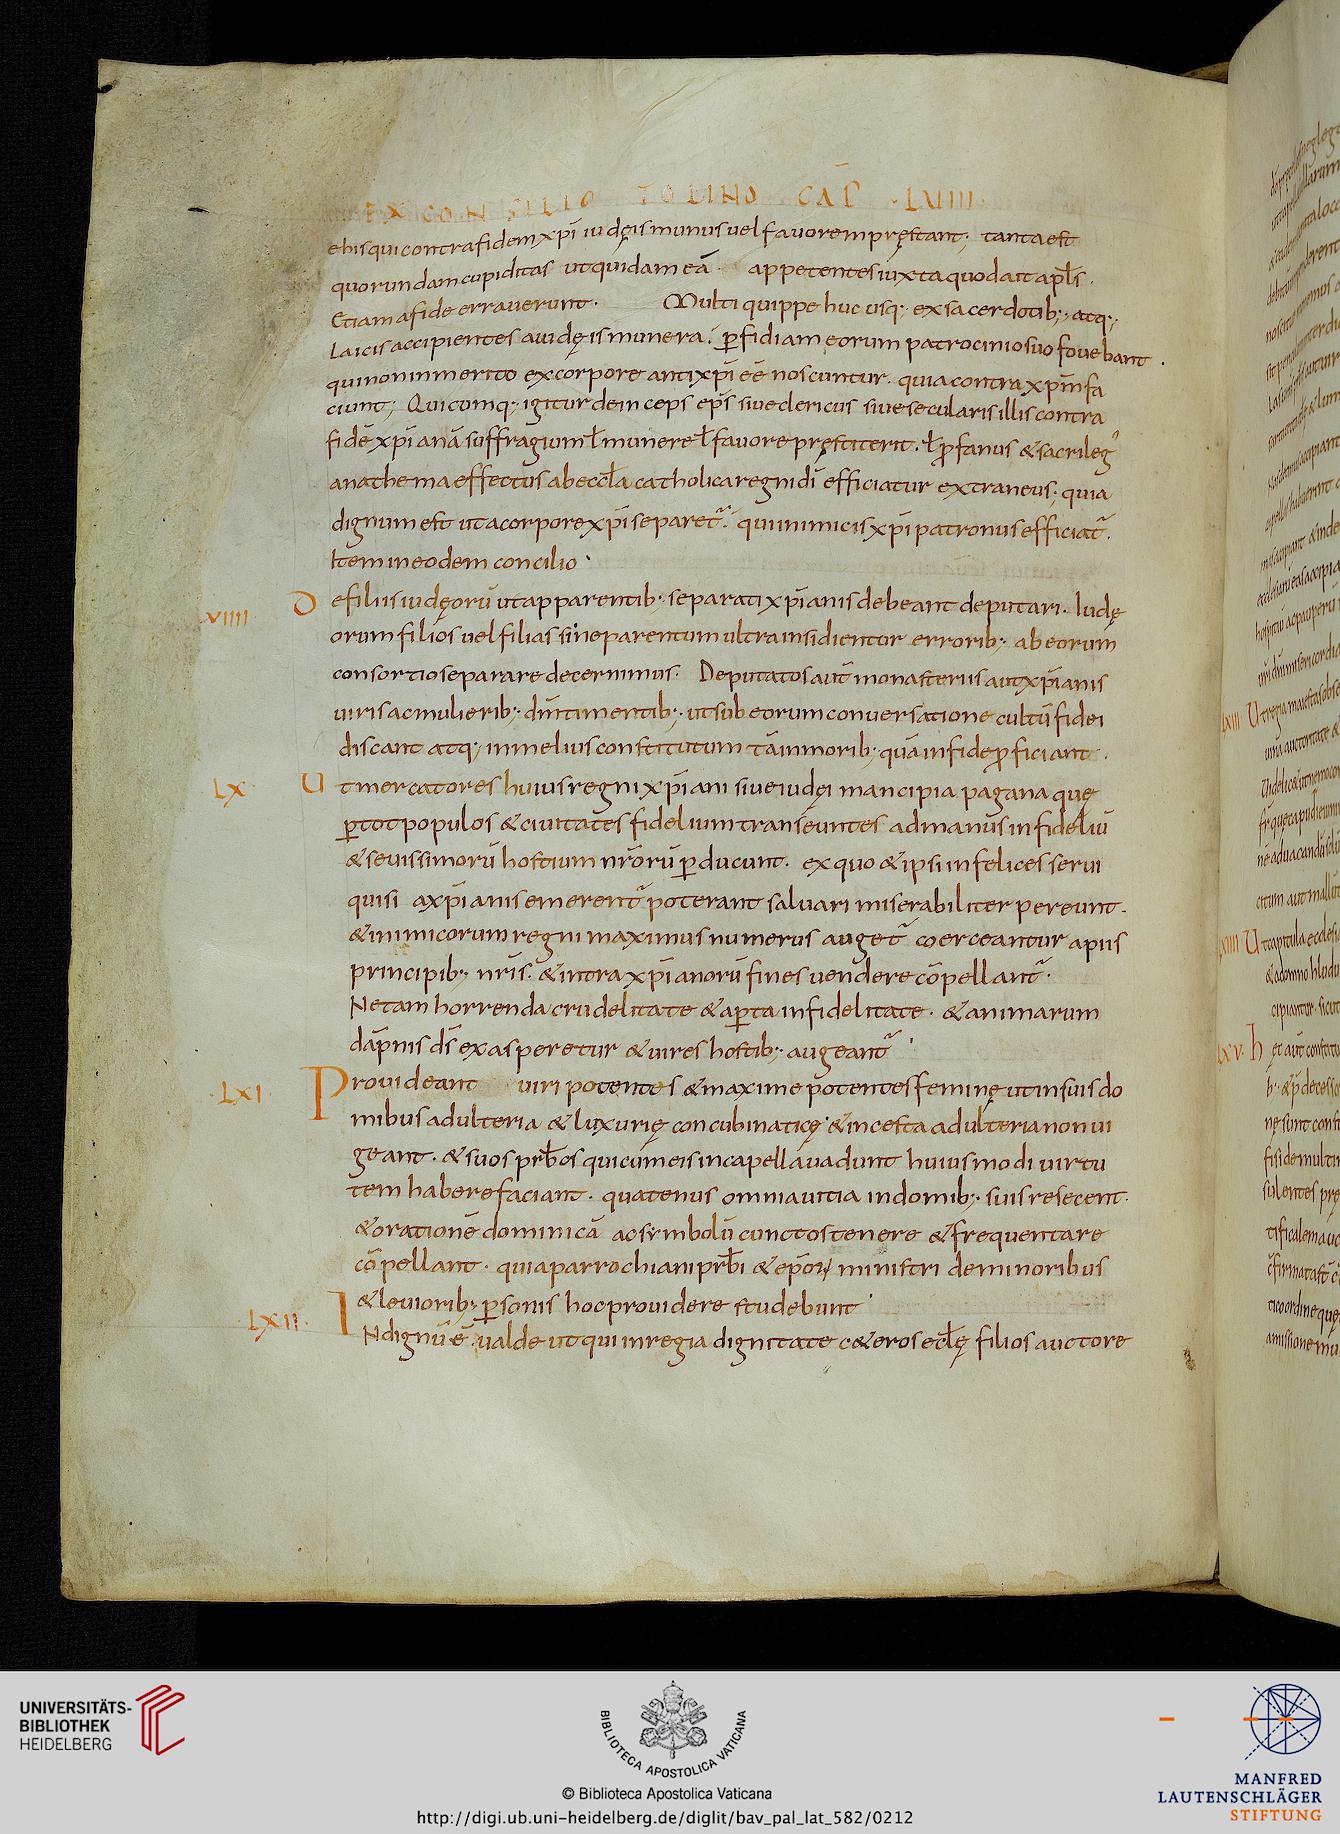 EX CONSILIO TOLINO CAP̅ · LVIIII
e his qui contra fidem xp̅i iudęis munus uel fauorem pręstant · tanta est
quorundam cupiditas ut quidam eā appetentes iuxta quod ait apl̅s ·
Etiam a fide errauerunt · Multi quippe huc usq; ex sacerdotib; · atq; ·
Laicis accipientes a iudęis munera · ꝑfidiam eorum patrocinio suo fouebant ·
qui non inmerito ex corpore antixp̅i ee̅ noscuntur · quia contra xp̅m fa
ciunt; Quicumq; igitur deinceps ep̅s siue clericus siue secularis illis contra
fidē xp̅i anā suffragium ł munere ł fauore pręstiterit · ł ꝓfanus & sacrileg'
anathema effectus ab eccl̅a catholica regni di̅ efficiatur extraneus · quia
dignum est ut a corpore xp̅i separet̅ · qui inimicis xp̅i patronus efficiat̅ ·
Item in eodem concilio ·
VIIII D e filiis iudęorū ut a pparentib · separati xp̅ianis debeant deputari · Iudę
orum filios uel filias sine parentum ultra insidientur errorib; ab eorum
consortio separare decernimus · Deputatos aut̅ monasteriis aut xp̅ianis
uiris ac mulierib; · dm̅ timentib; · ut sub eorum conuersatione cultū fidei
discant atq; in melius constitutum tā in morib; quā in fide ꝓficiant ·
LX U t mercatores huius regni xp̅iani siue iudęi mancipia pagana quę
ꝑ tot populos & ciuitates fidelium transeuntes ad manus infideliū
& seuissimorū hostium nr̅orū ꝑducunt · ex quo & ipsi infelices serui
qui si a xp̅ianis emerent̅ poterant saluari miserabiliter pereunt ·
& inimicorum regni maximus numerus auget̅ coerceantur a piis
principib; nr̅is · & intra xp̅ianorū fines uendere cōpellant̅ ·
Ne tam horrenda crudelitate & aꝑta infidelitate · & animarum
dāpnis ds̅ exasperetur & uires hostib; augeant̅ ·
LXI P rouideant uiri potentes & maxime potentes feminę ut in suis do
mibus adulteria & luxurię concubinaticę & incesta adulteria non ui
geant · & suos prb̅os qui cum eis in capella uadunt huiusmodi uirtu
tem habere faciant · quatenus omnia uitia in domib; suis resecent ·
& orationē dominicā ac simbolū cunctos tenere & frequentare
cōpellant · quia parrochiani prb̅i & ep̅oꝝ ministri de minoribus
& leuiorib; ꝑsonis hoc prouidere studebunt ·
LXII I Ndignū ē ualde ut qui in regia dignitate c&eros ecl̅ę filios auctore
UNIVERSITÄTS-
BIBLIOTHEK
HEIDELBERG
BIBLIOTECA APOSTOLICA VATICANA
© Biblioteca Apostolica Vaticana
http://digi.ub.uni-heidelberg.de/diglit/bav_pal_lat_582/0212
MANFRED
LAUTENSCHLÄGER
STIFTUNG